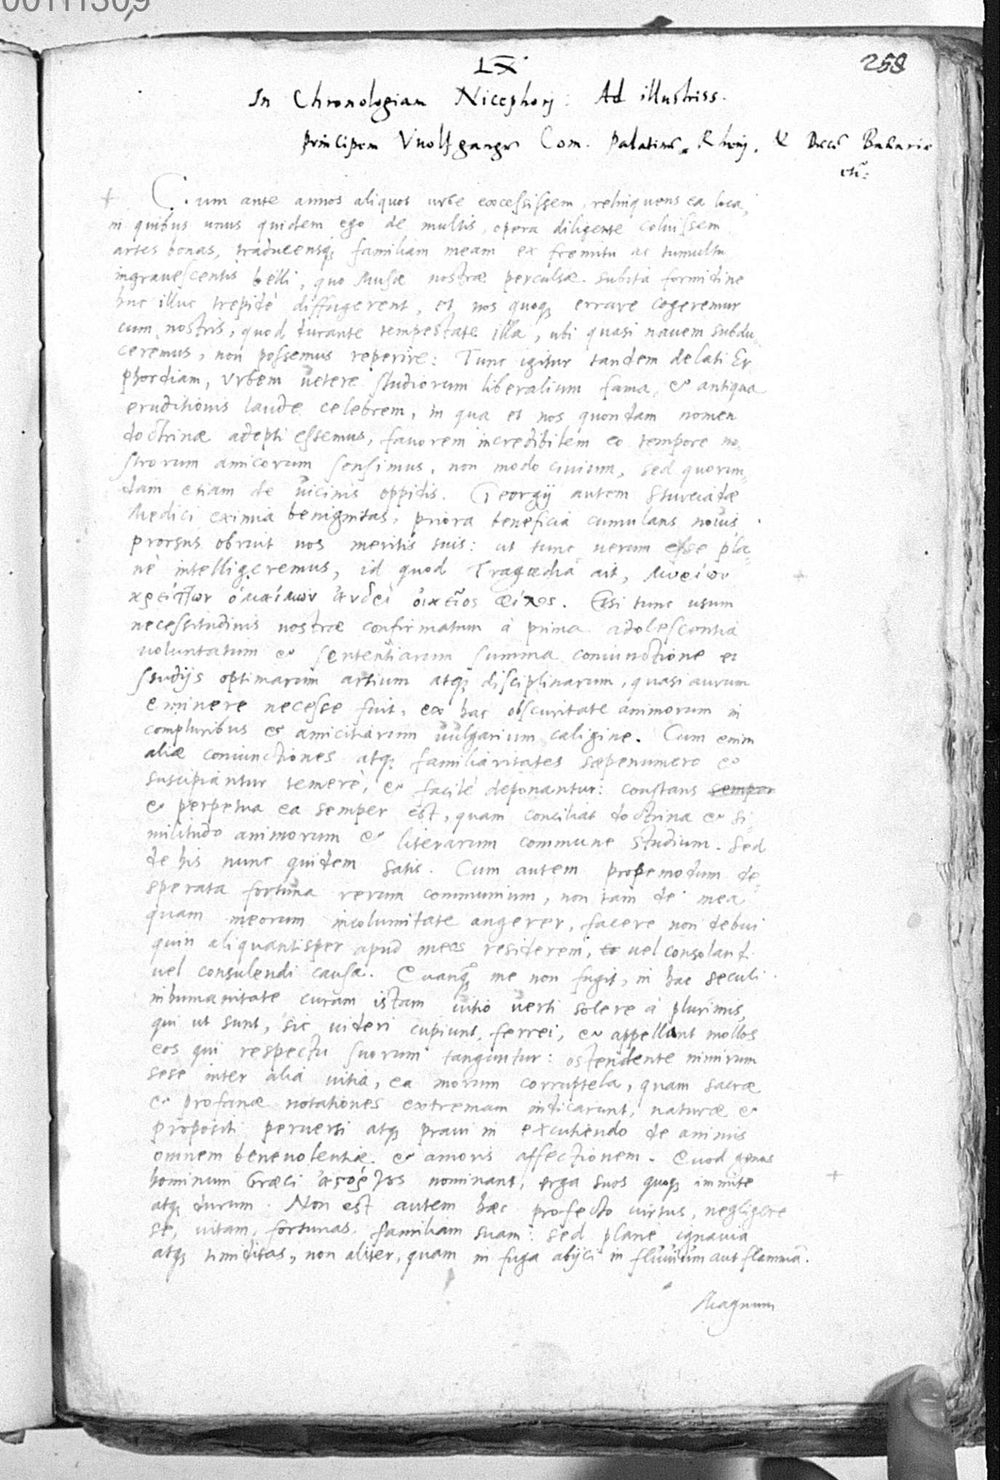 00111309
258
LX
In Chronologiam Nicephorj: Ad illustriss.
principem Vuolfgangū Com. palatinū Rhenj, & Ducē Bauariæ
etc:
Cum ante annos aliquot urbe excessissem, relinquens ea loca,
in quibus unus quidem ego de multis, opera diligente coluissem
artes bonas, traducensq; familiam meam ex fremitu ac tumultu
ingrauescentis belli, quo Musæ nostræ perculsæ subita formidine
huc illuc trepidè diffugerent, et nos quoq; errare cogeremur
cum nostris, quod durante tempestate illa, ubi quasi nauem subdu
ceremus, non possemus reperire: Tunc igitur tandem delati Er
phordiam, Vrbem uetere studiorum liberalium fama, & antiqua
eruditionis laude celebrem, in qua et nos quondam nomen
doctrinæ adepti essemus, fauorem incredibilem eo tempore no
strorum amicorum sensimus, non modo ciuium, sed quorun
dam etiam de uicinis oppidis. Georgij autem Sturciadæ
Medici eximia benignitas, priora beneficia cumulans nouis
prorsus obruit nos meritis suis: ut tunc uerum esse pla
nè intelligeremus, id quod Tragœdia ait, μυρίων
κρείττων ὁμαίμων ἀνδρὶ οἰκεῖος φίλος. Etsi tunc usum
necessitudinis nostræ confirmatum à prima adolescentia
uoluntatum & sententiarum summa coniunctione et
studijs optimarum artium atq; disciplinarum, quasi aurum
eminere necesse fuit, ex hac obscuritate animorum in
compluribus & amicitiarum uulgarium caligine. Cum enim
aliæ coniunctiones atq; familiaritates sæpenumero &
suscipiantur temerè, & facilè deponantur: constans semper
& perpetua ea semper est, quam conciliat doctrina & si
militudo animorum & literarum commune studium. Sed
de his nunc quidem satis. Cum autem propemodum de
sperata fortuna rerum communium, non tam de mea
quam meorum incolumitate angerer, facere non debui
quin aliquantisper apud meos residerem, uel consolandi
uel consulendi causa. Quanq; me non fugit, in hac seculi
inhumanitate curam istam uitio uerti solere à plurimis,
qui ut sunt, sic uideri cupiunt, ferrei, & appellant molles
eos qui respectu suorum tanguntur: ostendente nimirum
sese inter alia uitia, ea morum corruptela, quam sacræ
& profanæ notationes extremam indicarunt, naturæ &
propositi peruersi atq; praui in excutiendo de animis
omnem beneuolentiæ & amoris affectionem. Quod genus
hominum Græci ἀστόργους nominant, erga suos quoq; immite
atq; durum. Non est autem hæc profecto uirtus, negligere
se, uitam, fortunas, familiam suam: sed planè ignauia
atq; timiditas, non aliter, quam in fuga abijci in fluuium aut flammā.
Magnum